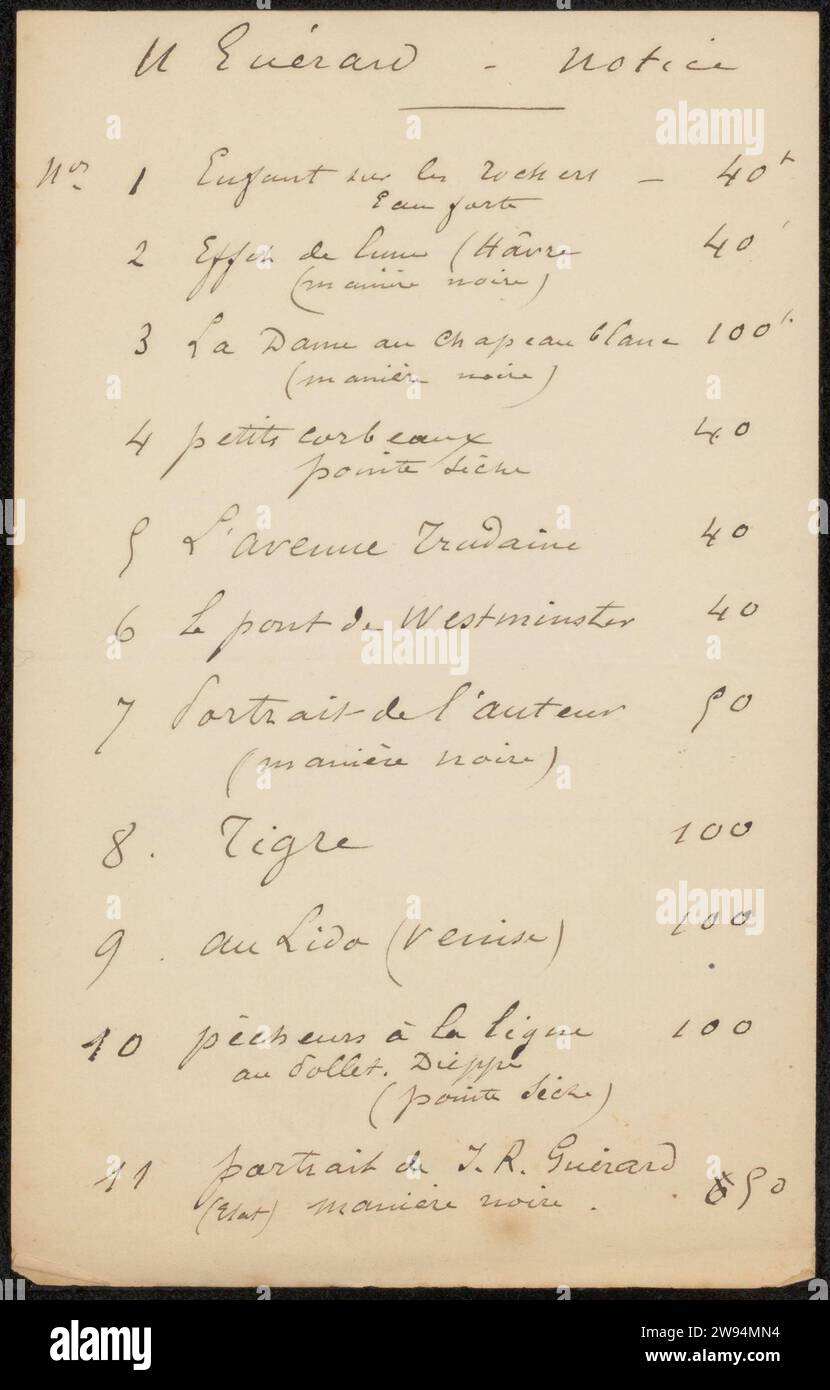 H Guérard - Notice
Nos 1 Enfant sur les rochers — 40f
Eau forte
2 Effet de lune (Hâvre 40f
(manière noire)
3 La Dame au chapeau blanc 100f.
(manière noire)
4 petits corbeaux 40
pointe sèche
5 L'avenue Trudaine 40
6 le pont de Westminster 40
7 Portrait de l'auteur 50
(manière noire)
8. Tigre 100
9. au Lido (Venise) 100
10 pêcheurs à la ligne 100
au Pollet. Dieppe
(pointe sèche)
11 portrait de J. R. Guérard
(Etat) manière noire. 50
alamy
Image ID: 2W94MN4
www.alamy.com